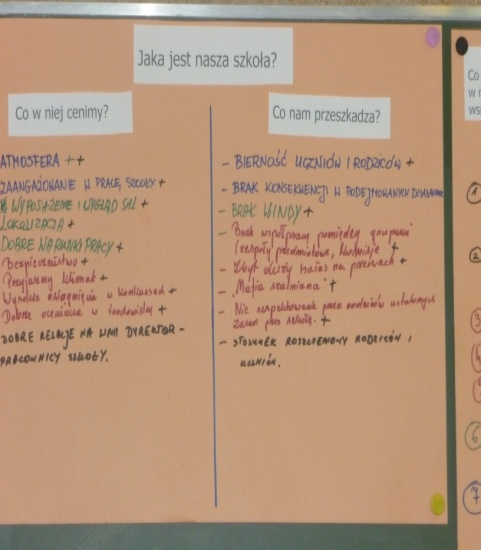 Jaka jest nasza szkoła?
Co w niej cenimy?
ATMOSFERA ++
ZAANGAŻOWANIE W PRACĘ SZKOŁY +
WYPOSAŻENIE I WYGLĄD SAL +
LOKALIZACJA +
DOBRE WARUNKI PRACY +
Bezpieczeństwo +
Przyjazny klimat +
Wysokie osiągnięcia w konkursach +
Dobre w środowisku +
DOBRE RELACJE NA LINII DYREKTOR -
PRACOWNICY SZKOŁY.
Co nam przeszkadza?
- BIERNOŚĆ UCZNIÓW I RODZICÓW +
- BRAK KONSEKWENCJI W PODEJMOWANYCH DZIAŁANIACH
- BRAK WINDY +
- Brak współpracy pomiędzy grupami
(zespoły przedmiotowe, +
- Zbyt duży hałas na przerwach +
- "Mafia szatniana" +
- Nie respektowanie przez rodziców ustalonych
zasad przez szkołę. +
- STOSUNEK ROSZCZENIOWY RODZICÓW I
UCZNIÓW.
Co
w n
wsp
1
2
3
4
5
6
7